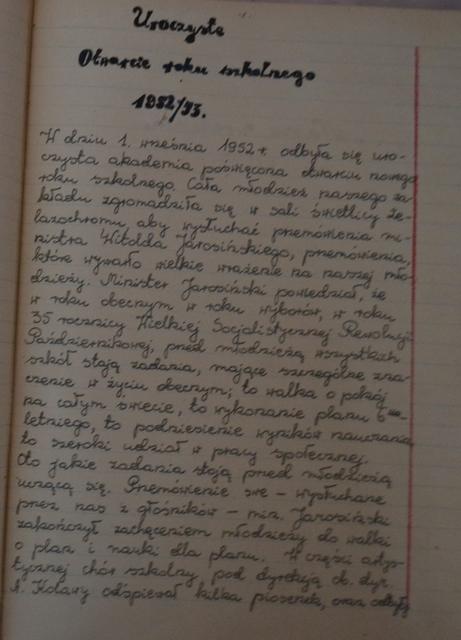 Uroczyste
Otwarcie roku szkolnego
1952/53.
W dniu 1. września 1952 r. odbyła się uro-
czysta akademia poświęcona otwarciu nowego
roku szkolnego. Cała młodzież naszego za-
kładu zgromadziła się w sali świetlicy Że-
lazochromu aby wysłuchać przemówienia mi-
nistra Witolda Jarosińskiego, przemówienia,
które wywarło wielkie wrażenie na naszej mło-
dzieży. Minister Jarosiński powiedział, że
w roku obecnym w roku wyborów, w roku
35 rocznicy Wielkiej Socjalistycznej Rewolucji
Październikowej, przed młodzieżą wszystkich
szkół stają zadania, mające szczególne zna-
czenie w życiu obecnym; to walka o pokój
na całym świecie, to wykonanie planu 6-cio
letniego, to podniesienie wyników nauczania
to szeroki udział w pracy społecznej.
Oto jakie zadania stoją przed młodzieżą
uczącą się. Przemówienie swe - wysłuchane
przez nas z głośników - min. Jarosiński
zakończył zachęceniem młodzieży do walki
o plan i nauki dla planu. W części artys-
tycznej chór szkolny pod dyrekcją ob. dyr.
A. Kolawy odśpiewał kilka piosenek, oraz odbyły